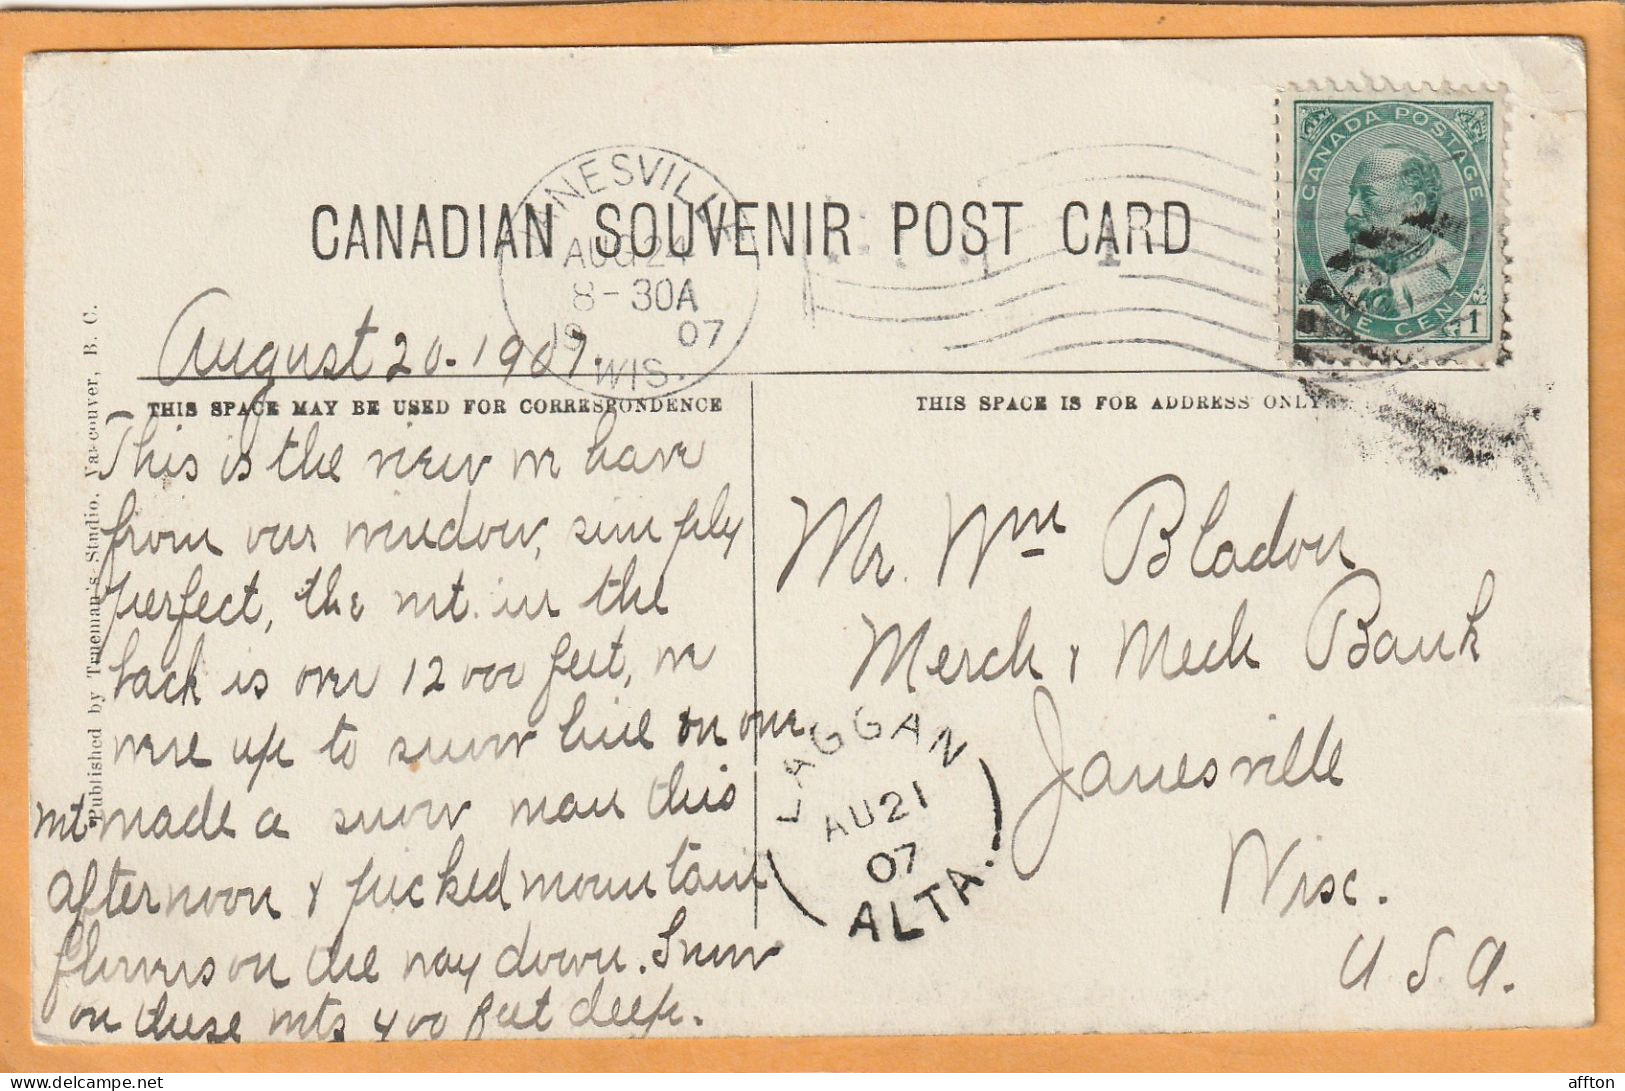 CANADA POSTAGE
ONE CENT
1
JANESVILLE
AUG 24
8-30A
19 07
WIS.
CANADIAN SOUVENIR POST CARD
August 20. 1907.
THIS SPACE MAY BE USED FOR CORRESPONDENCE
THIS SPACE IS FOR ADDRESS ONLY
This is the view we have
from our window, simply
perfect, the mt. in the
back is over 12000 feet, we
were up to snow line on our
mt made a snow man this
afternoon & picked mountain
flowers on the way down. Snow
on these mts 400 feet deep.
Mr. Wm Bladon
Merch & Mech Bank
Janesville
Wisc.
U.S.A.
LAGGAN
AU 21
07
ALTA.
Published by Trueman's Studio, Vancouver, B. C.
affton